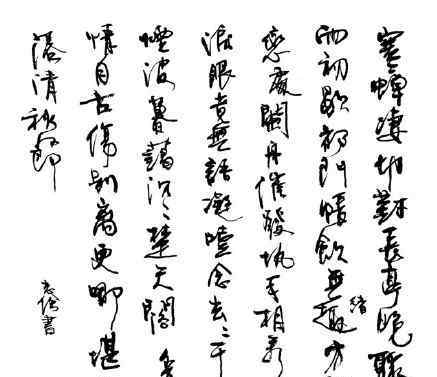 寒蟬凄切對長亭晚驟
雨初歇都門帳飲無趣方
緒
戀處闌舟催發執手相看
淚眼竟無語凝噎念去々千
煙波暮靄沉々楚天闊多
情自古傷別離更哪堪
落清秋節
書